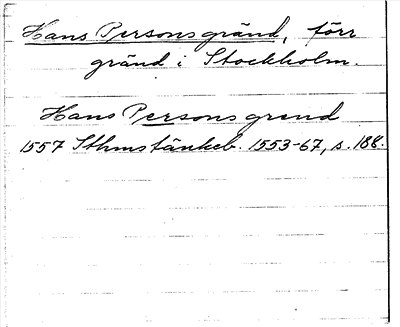 Hans Persons gränd, förr
gränd i Stockholm.
Hans Persons grend
1557 Sthms tänkeb. 1553-67, s. 188.